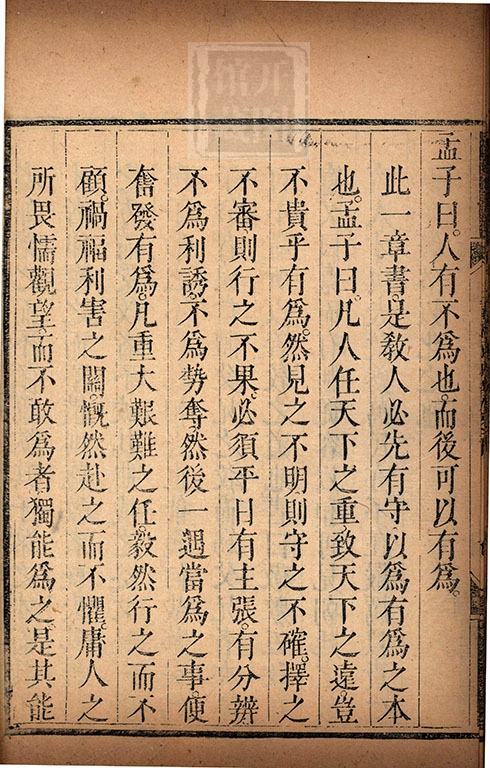 孟子曰。人有不爲也。而後可以有爲。
此一章書。是教人必先有守以爲有爲之本
也。孟子曰。凡人任天下之重致天下之遠。豈
不貴乎有爲。然見之不明則守之不確。擇之
不審則行之不果。必須平日有主張。有分辨
不爲利誘。不爲勢奪然後一遇當爲之事。便
奮發有爲。凡重大艱難之任。毅然行之而不
顧。禍福利害之關。慨然赴之而不懼。庸人之
所畏懦觀望而不敢爲者。獨能爲之。是其能